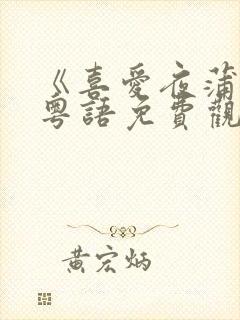 《喜愛夜蒲
粵語免費觀
黃宏炳